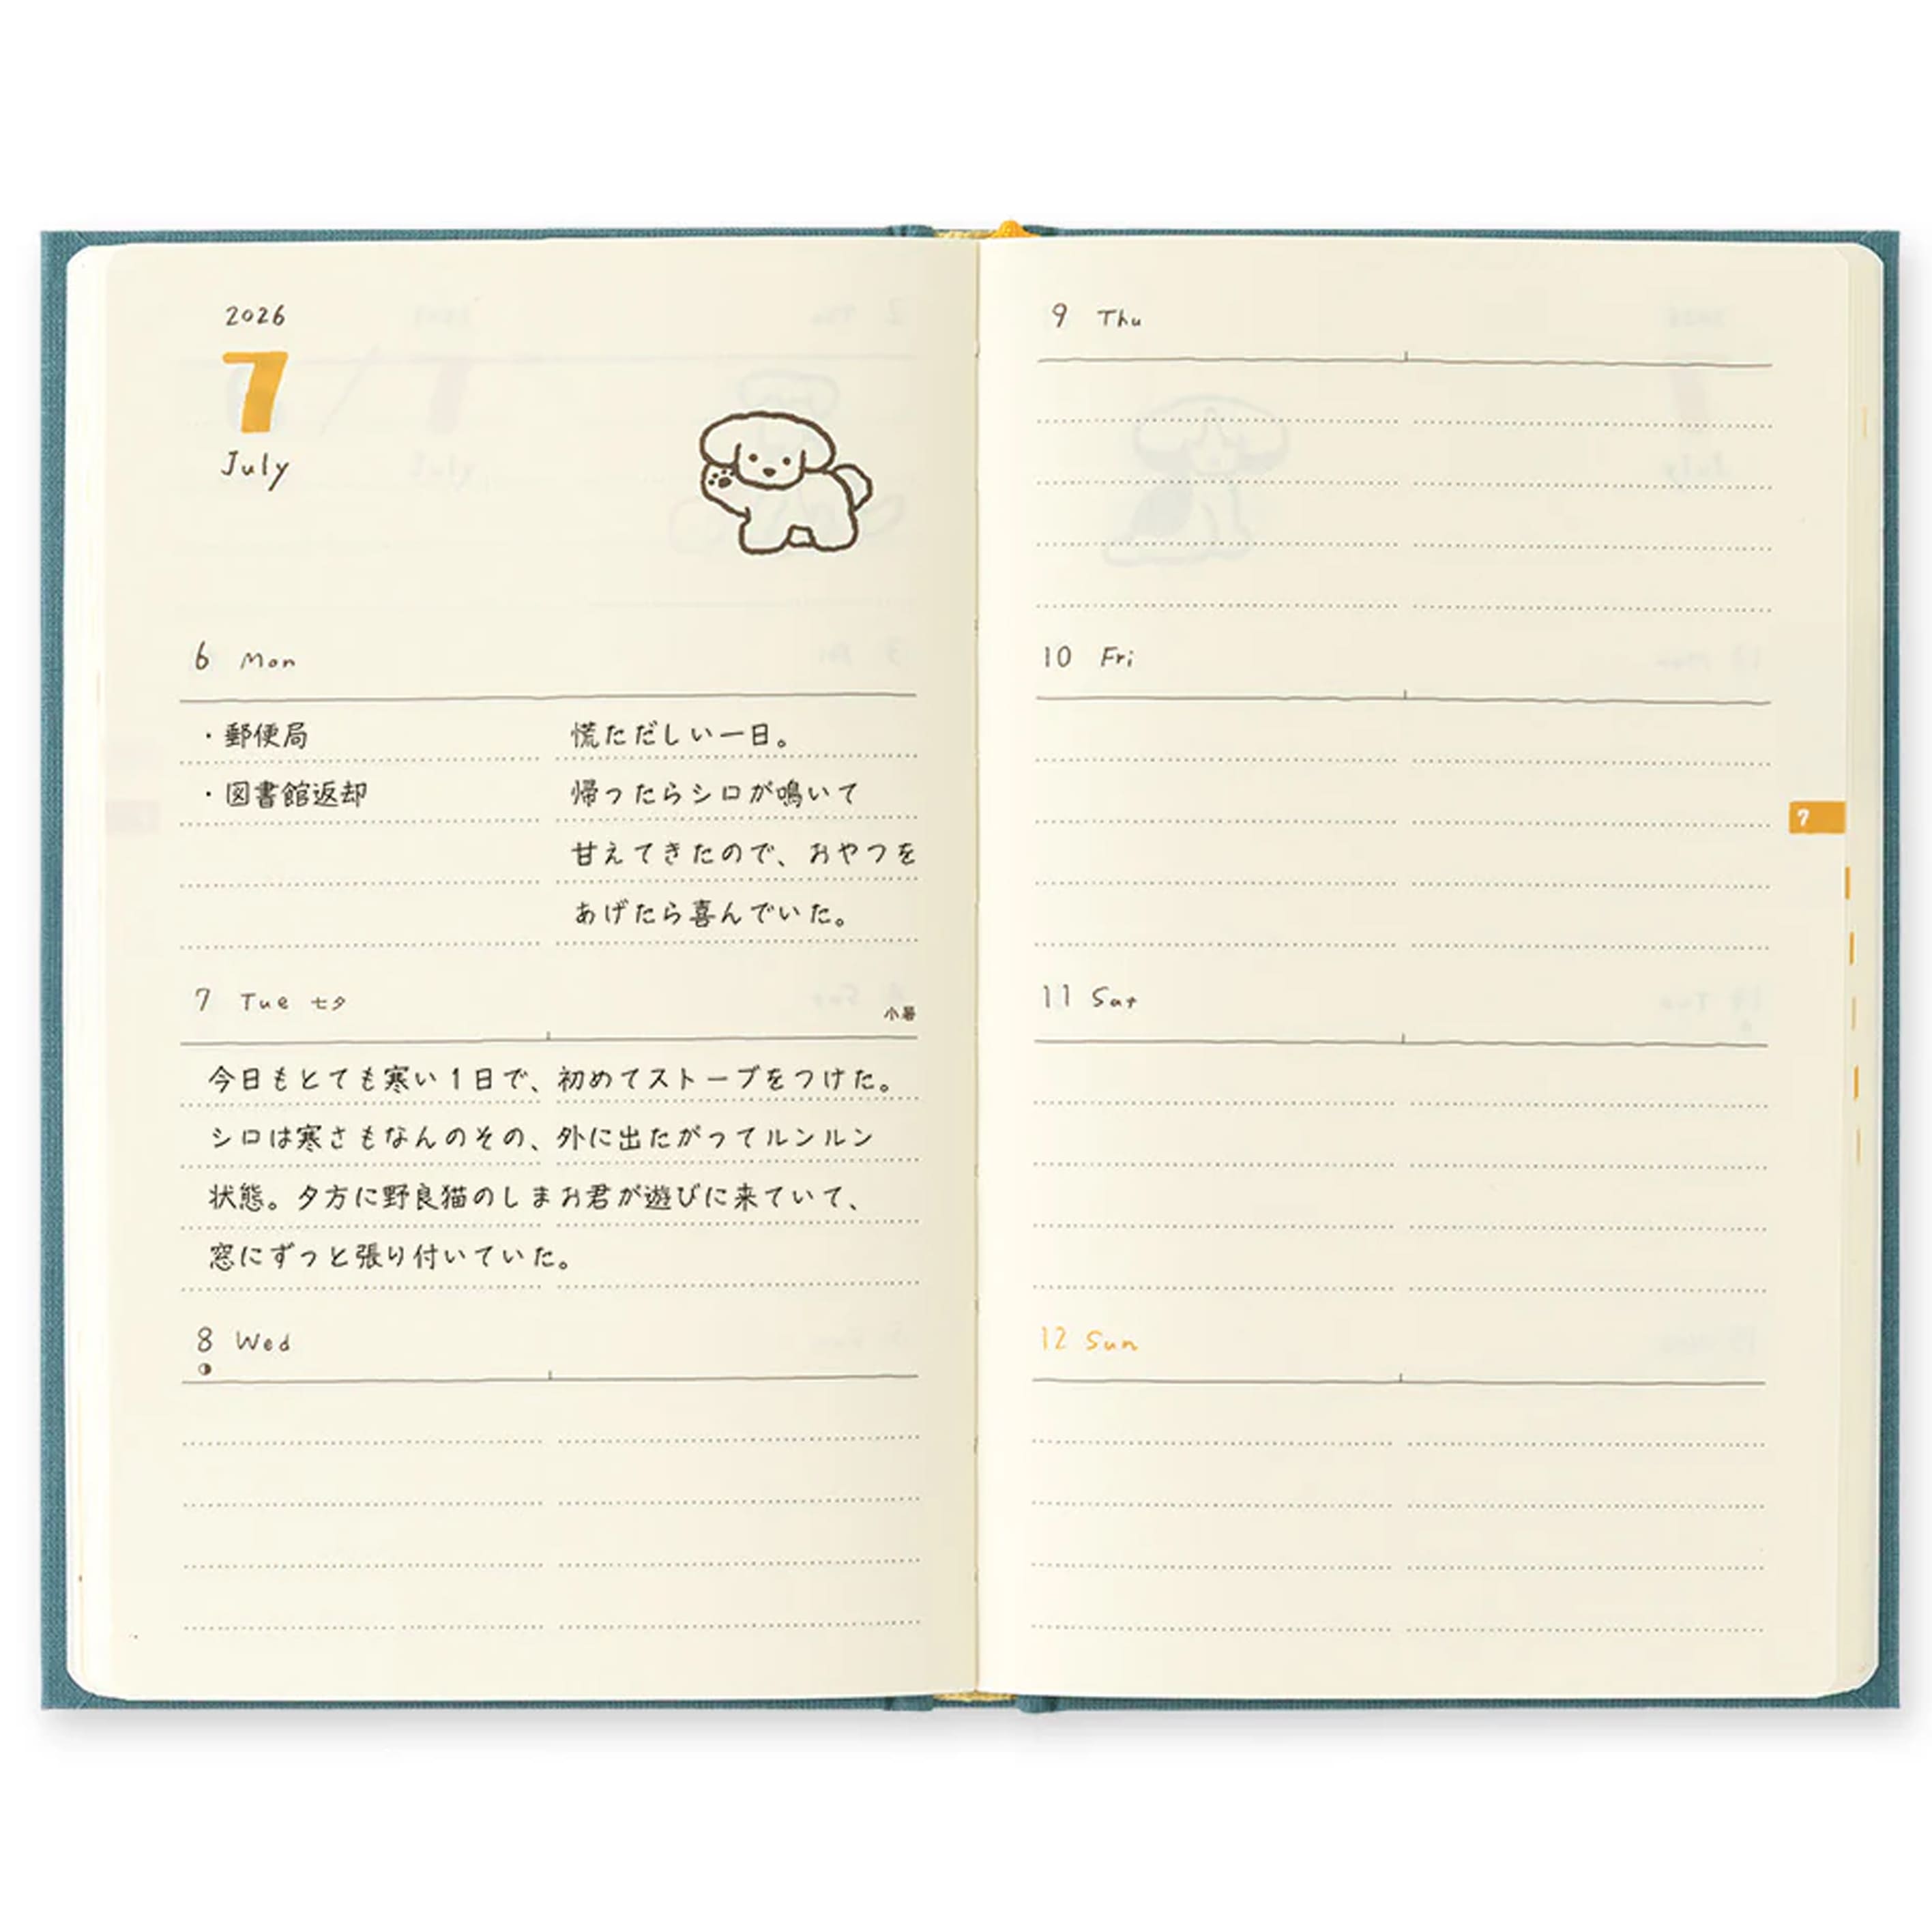 2026
7
July
6 Mon
・郵便局
・図書館返却
慌ただしい一日。
帰ったらシロが鳴いて
甘えてきたので、おやつを
あげたら喜んでいた。
7 Tue 七夕
小暑
今日もとても寒い1日で、初めてストーブをつけた。
シロは寒さもなんのその、外に出たがってルンルン
状態。夕方に野良猫のしまお君が遊びに来ていて、
窓にずっと張り付いていた。
8 Wed
9 Thu
10 Fri
7
11 Sat
12 Sun